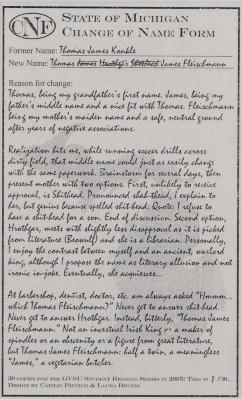 CNF
STATE OF MICHIGAN
CHANGE OF NAME FORM
Former Name: Thomas James Konkle
New Name: Thomas James Hrothgar Shithead James Fleischmann
Reason for change:
Thomas, being my grandfather's first name. James, being my
father's middle name and a nice fit with Thomas. Fleischmann
being my mother's maiden name and a safe, neutral ground
after years of negative associations.
Realization hits me, while running soccer drills across
dirty field, that middle name could just as easily change
with the same paperwork. Brainstorm for several days, then
present mother with two options. First, unlikely to receive
approval, is Shithead. Pronounced shah-thead, I explain to
her, but genius because spelled shit-head. Quote: I refuse to
have a shit-head for a son. End of discussion. Second option,
Hrothgar, meets with slightly less disapproval as it is picked
from literature (Beowulf) and she is a librarian. Personally,
I enjoy the contrast between myself and an ancient, warlord
king, although I propose the name as literary allusion and not
ironic in-joke. Eventually, she acquiesces...
At barbershop, dentist, doctor, etc. am always asked "Hmmm...
which Thomas Fleischmann?" Never get to answer shit-head.
Never get to answer Hrothgar. Instead, bitterly, "Thomas James
Fleischmann." Not an incestual Irish King or a maker of
spindles or an obscenity or a figure from great literature,
but Thomas James Fleischmann: half a twin, a meaningless
"James," a vegetarian butcher.
30 COPIES FOR THE GVSU STUDENT READING SERIES IN 2005: THIS IS 1/30.
DESIGN BY CAITLIN